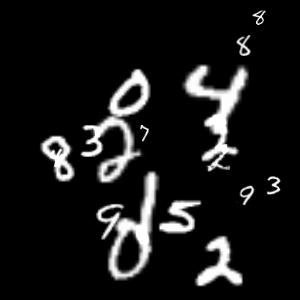 8
8
0 4
3 2 7
8
2
9 3
9 5
2